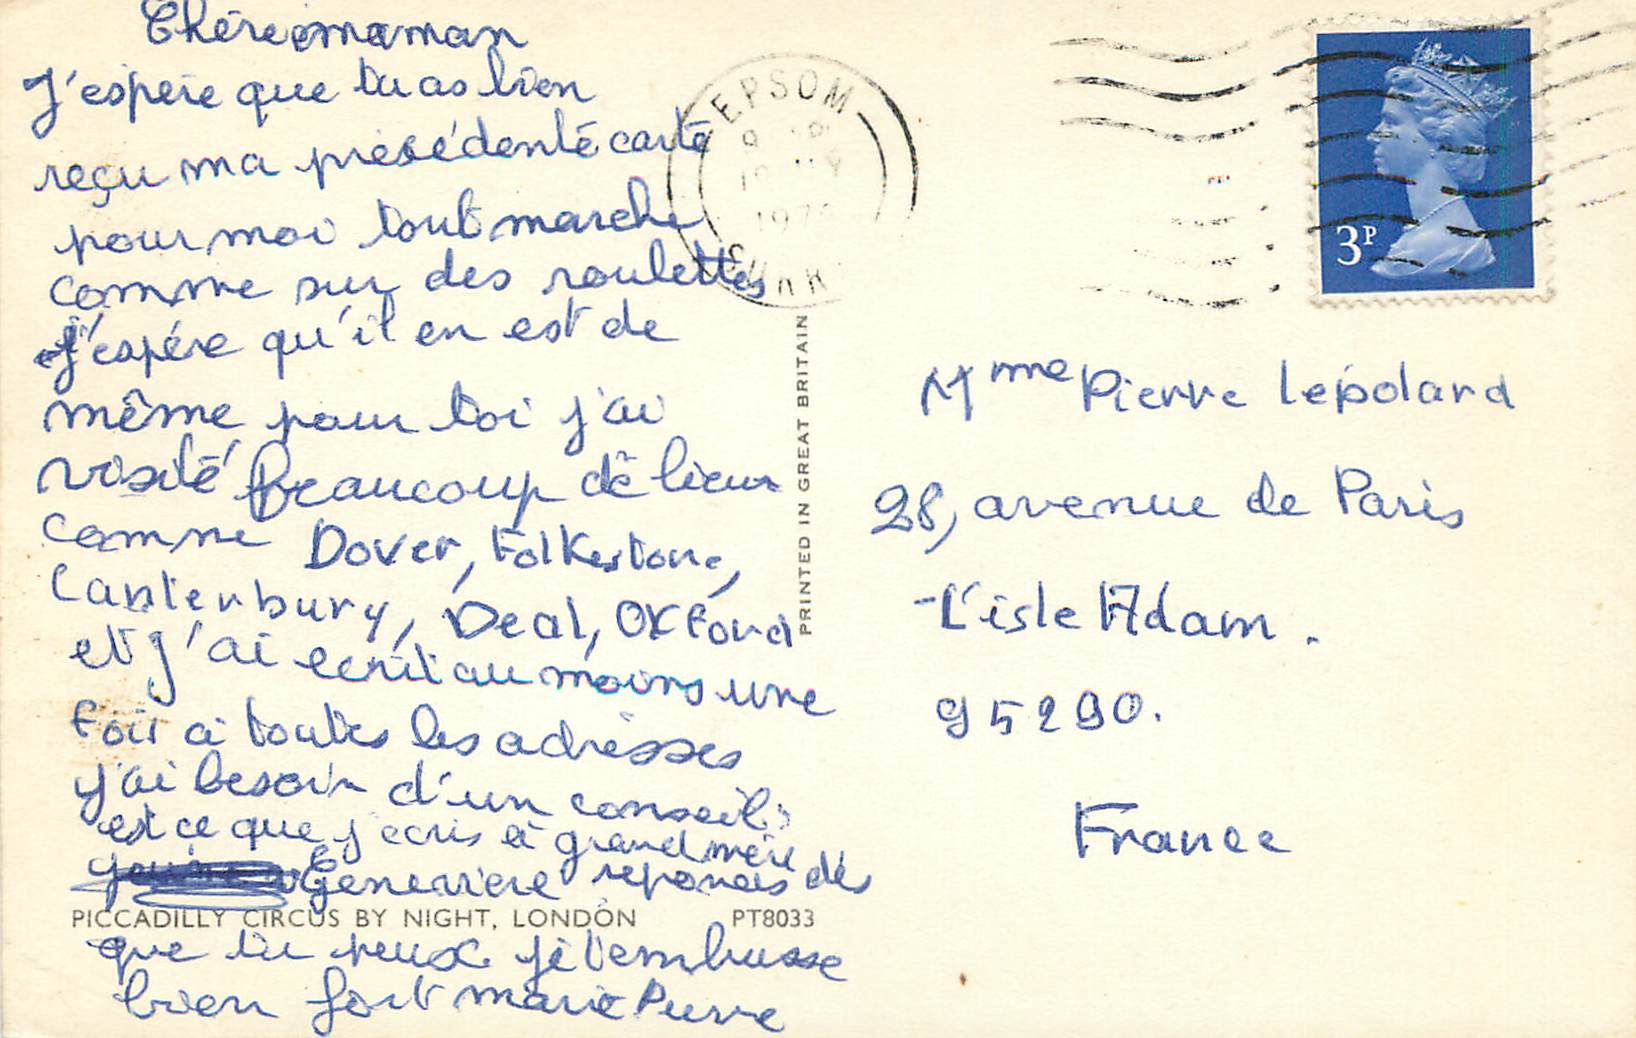 Chère maman
J'espère que tu as bien
reçu ma précédente carte
pour moi tout marche
comme sur des roulettes
j'espére qu'il en est de
même pour toi j'ai
visité beaucoup de lieux
comme Dover, Folkestone,
Canterbury, Deal, OXFord
et j'ai ecrit au moins une
fois à toutes les adresses
j'ai besoin d'un conseil:
est ce que j'ecris à grand mère
Genevieve reponds dès
que tu peux je t'embrasse
bien fort marie Pierre
PICCADILLY CIRCUS BY NIGHT, LONDON PT8033
PRINTED IN GREAT BRITAIN
EPSOM
197
SURR
3P
Mme Pierre Lepolard
28, avenue de Paris
L'isle Adam.
95290.
France